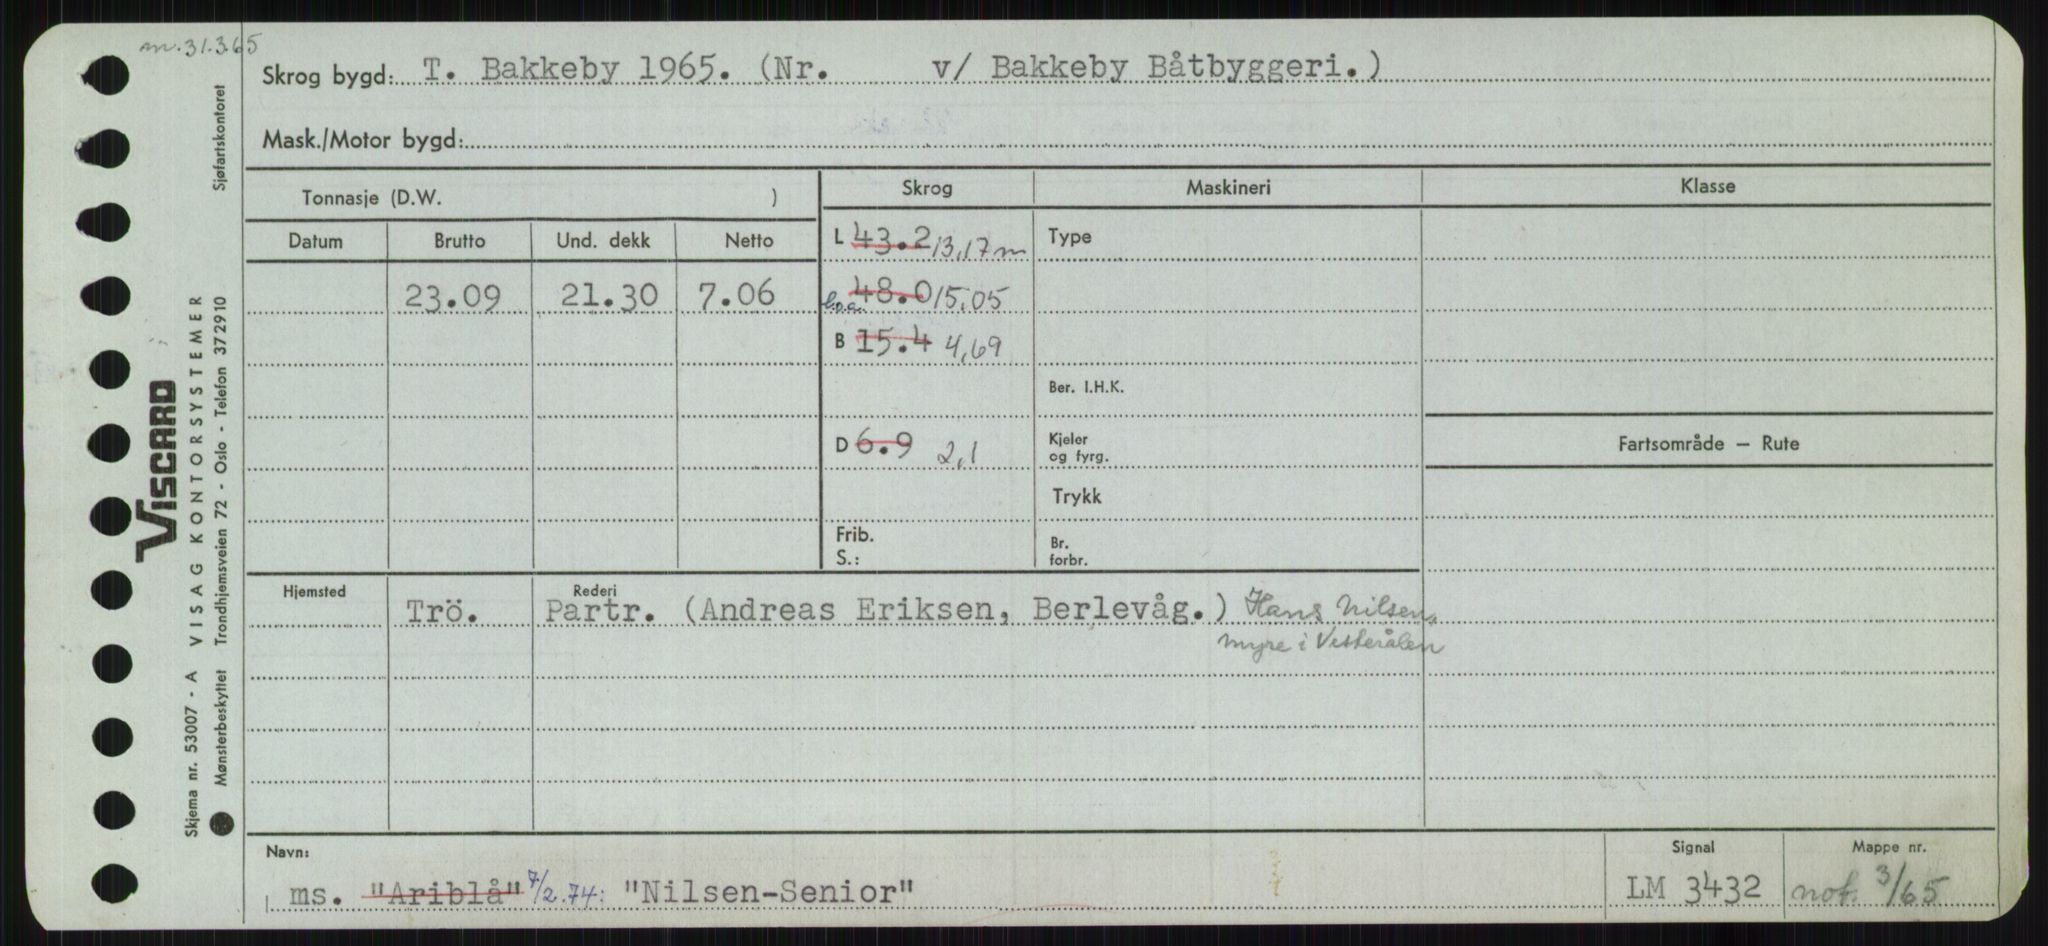 m. 31.3.65
Skrog bygd: T. Bakkeby 1965. (Nr. v/ Bakkeby Båtbyggeri.)
Mask./Motor bygd:
Tonnasje (D.W. )
Skrog
Maskineri
Klasse
Datum Brutto Und. dekk Netto
L 43.2 13,17 m
Type
23.09 21.30 7.06
l.o.a. 48.0 15.05
B 15.4 4,69
Ber. I.H.K.
D 6.9 2,1
Kjeler
og fyrg.
Fartsområde — Rute
Trykk
Frib.
S.:
Br.
forbr.
Hjemsted
Rederi
Trö. Partr. (Andreas Eriksen, Berlevåg.) Hans Nilsen,
Myre i Vesterålen
Navn:
ms. "Ariblå" 7/2.74: "Nilsen-Senior"
Signal
LM 3432
Mappe nr.
not. 3/65
VISCARD
Skjema nr. 53007 - A VISAG KONTORSYSTEMER
Mønsterbeskyttet Trondhjemsveien 72 - Oslo - Telefon 372910 Sjøfartskontoret